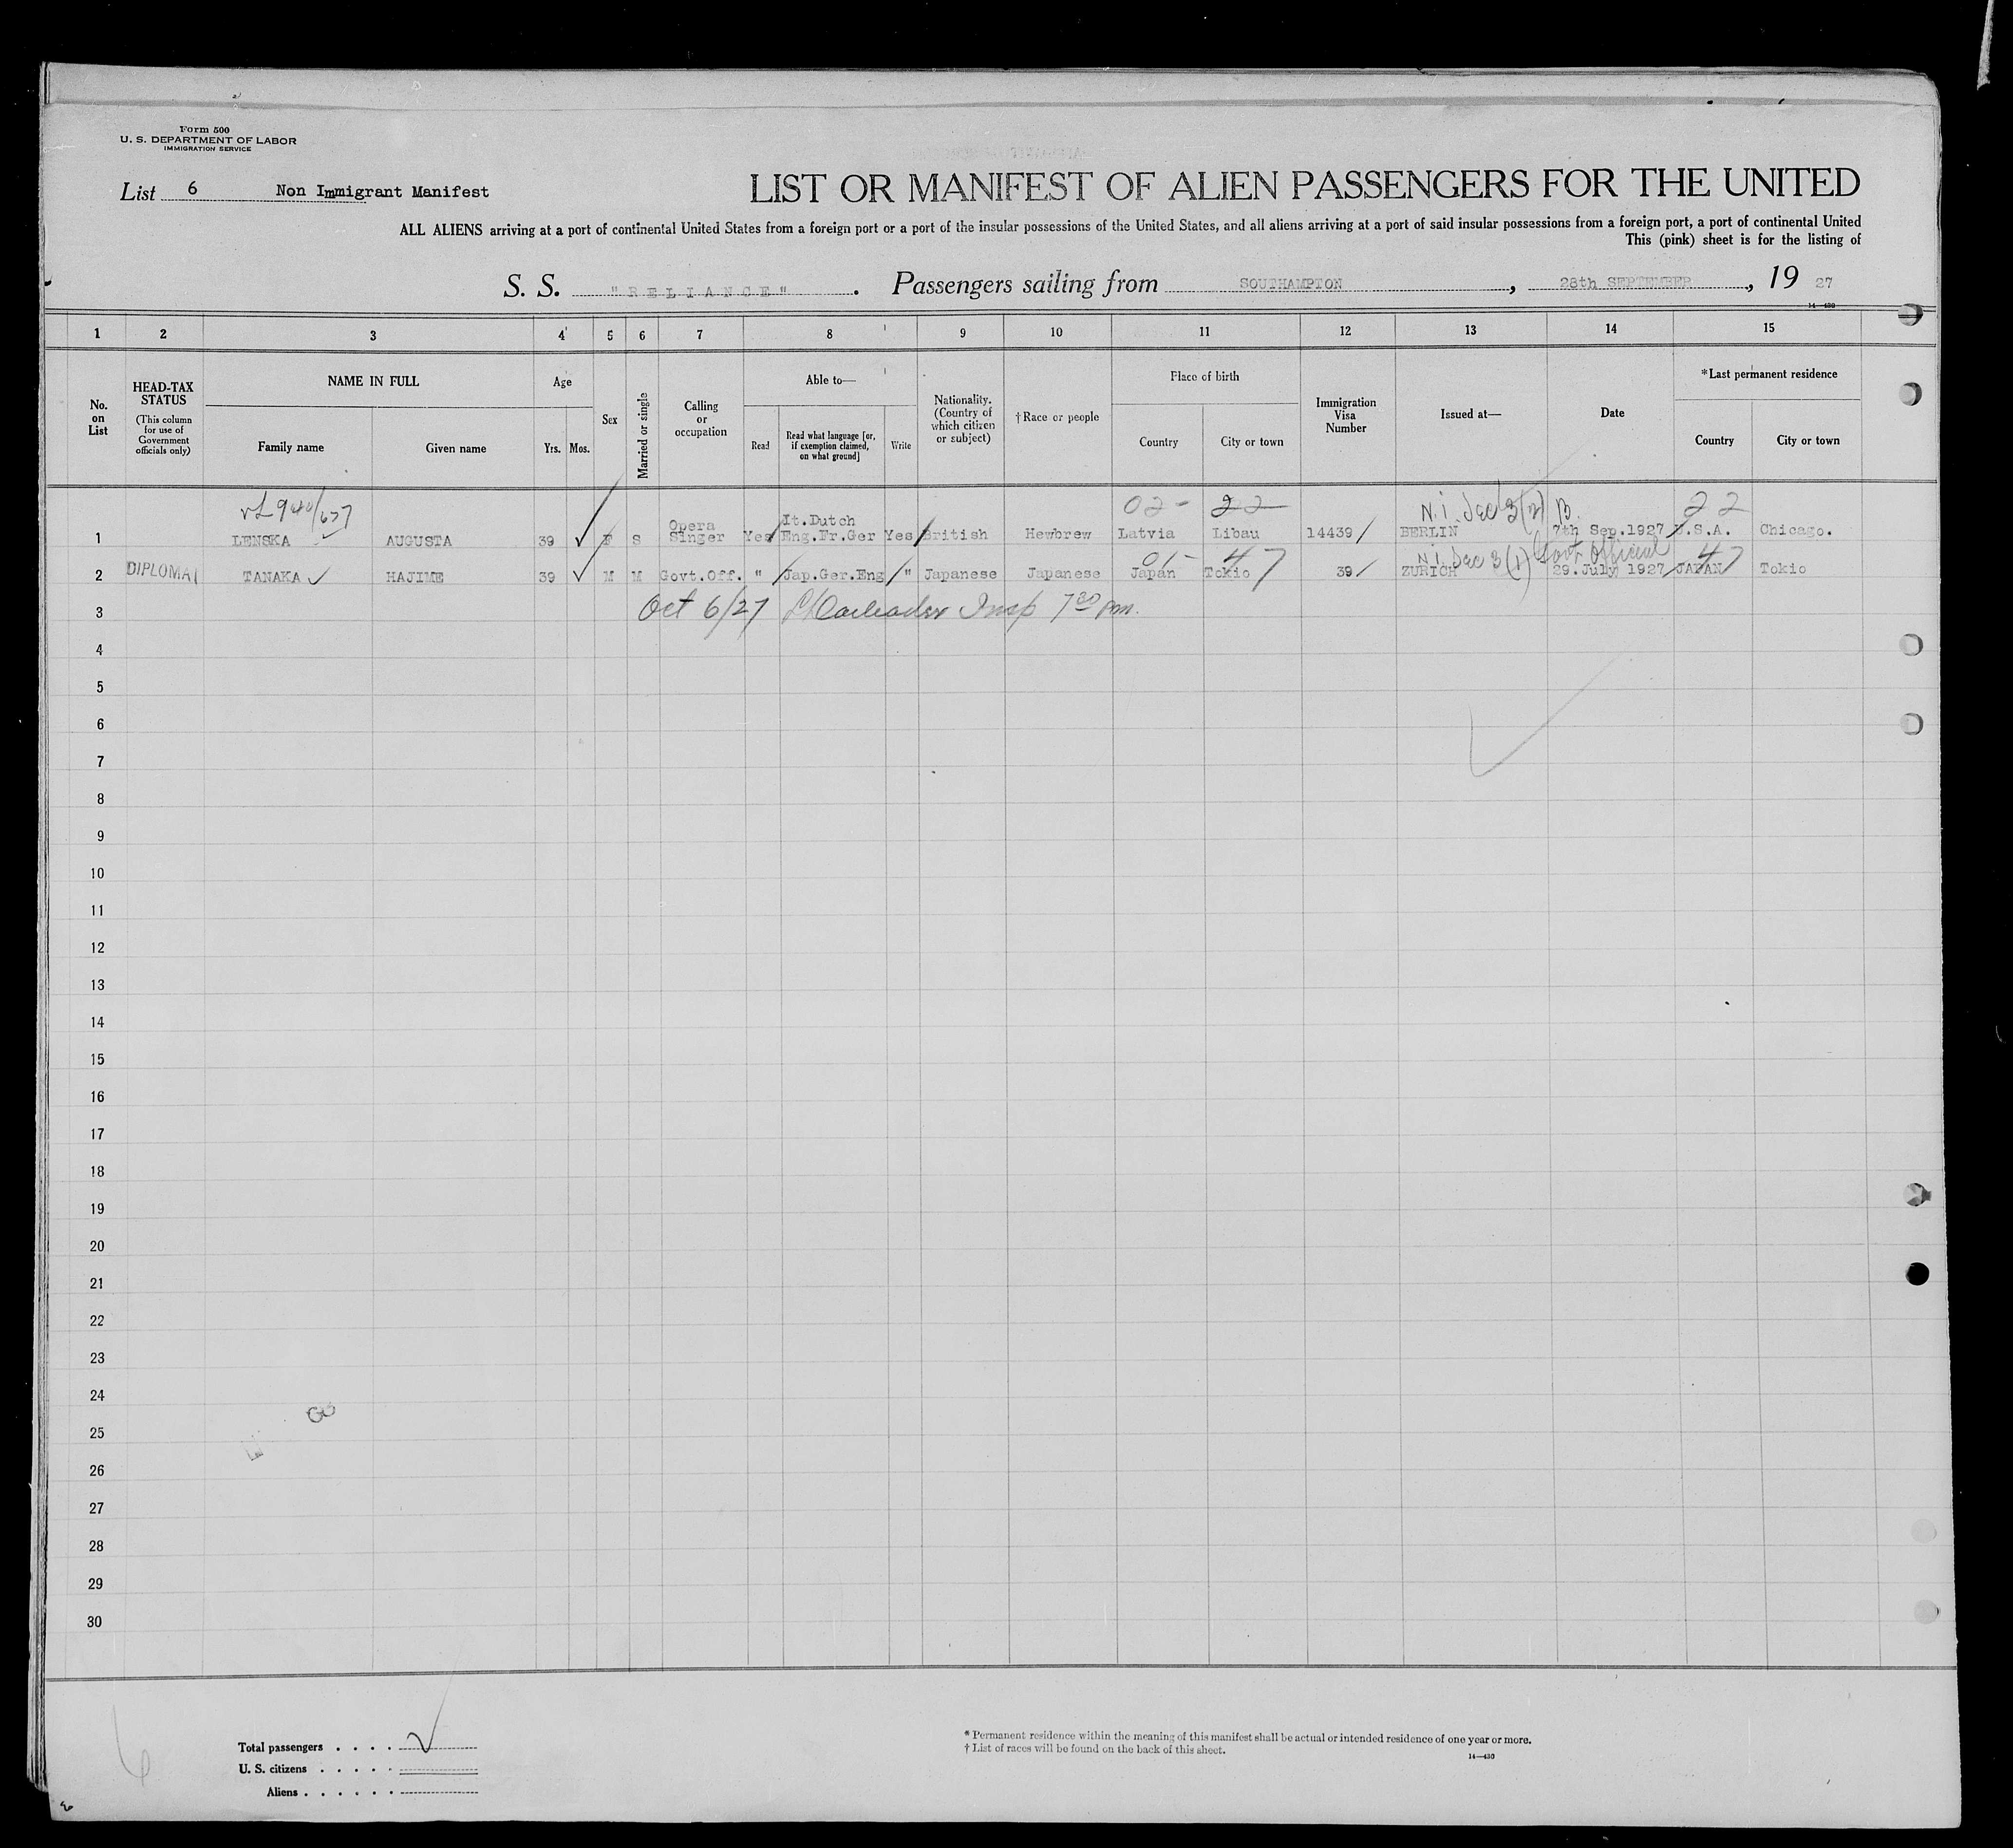 Form 500
U. S. DEPARTMENT OF LABOR
IMMIGRATION SERVICE
List 6 Non Immigrant Manifest
LIST OR MANIFEST OF ALIEN PASSENGERS FOR THE UNITED
ALL ALIENS arriving at a port of continental United States from a foreign port or a port of the insular possessions of the United States, and all aliens arriving at a port of said insular possessions from a foreign port, a port of continental United
This (pink) sheet is for the listing of
S. S. "RELIANCE". Passengers sailing from SOUTHAMPTON, 28th SEPTEMBER, 19 27
14—430
1 2 3 4 5 6 7 8 9 10 11 12 13 14 15
No. on List
HEAD-TAX STATUS (This column for use of Government officials only)
NAME IN FULL
Family name Given name
Age
Yrs. Mos.
Sex
Married or single
Calling or occupation
Able to—
Read
Read what language [or, if exemption claimed, on what ground]
Write
Nationality. (Country of which citizen or subject)
† Race or people
Place of birth
Country City or town
Immigration Visa Number
Issued at—
Date
*Last permanent residence
Country City or town
02- 22 N.i. Sec 3(2) B. 22
1 LENSKA AUGUSTA 39 F S Opera Singer Yes It.Dutch Eng.Fr.Ger Yes British Hewbrew Latvia Libau 14439 BERLIN 7th Sep.1927 U.S.A. Chicago.
01- 47 N.i. Sec 3(1) Govt Official 47
2 DIPLOMAT TANAKA HAJIME 39 M M Govt.Off. " Jap.Ger.Eng " Japanese Japanese Japan Tokio 39 ZURICH 29.July 1927 JAPAN Tokio
3 Oct 6/27 Insp 7 30 pm.
4
5
6
7
8
9
10
11
12
13
14
15
16
17
18
19
20
21
22
23
24
25
26
27
28
29
30
Total passengers . . . .
U. S. citizens . . . . .
Aliens . . . . . .
* Permanent residence within the meaning of this manifest shall be actual or intended residence of one year or more.
† List of races will be found on the back of this sheet.
14—430
6